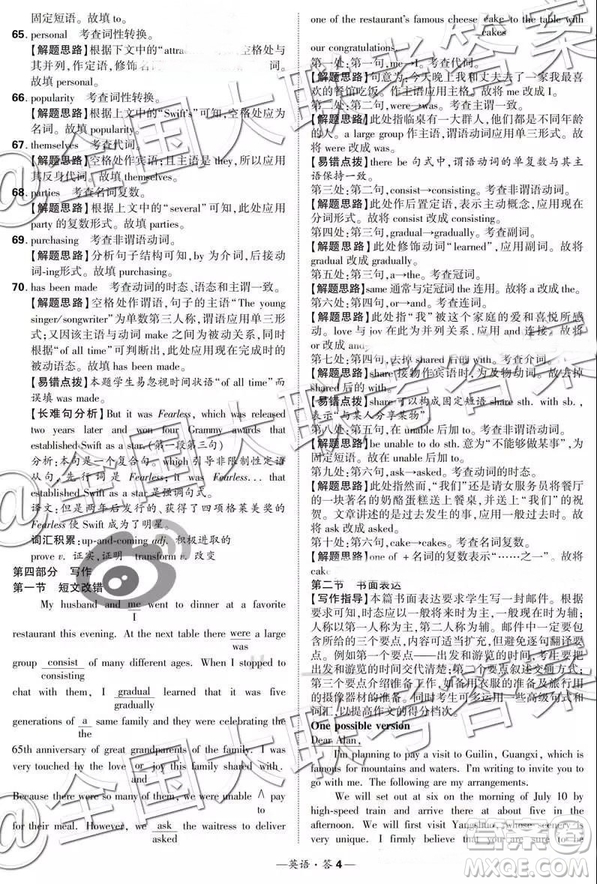 固定短语。故填 to。
65. personal 考查词性转换。
【解题思路】根据下文中的 空格处与
其并列,作定语,修饰名词
故填 personal。
66. popularity 考查词性转换。
【解题思路】根据上文中的“Swift's”可知,空格处应为
名词。故填 popularity。
67. themselves 考查代词。
【解题思路】空格处作宾语;且主语与宾语一致,应用
其反身代词。故填 themselves。
68. parties 考查名词复数。
【解题思路】根据上文中的“several”可知,此处应用
party 的复数形式。故填 parties。
69. purchasing 考查非谓语动词。
【解题思路】分析句子结构可知,by 为介词,后接动
词-ing形式。故填 purchasing。
70. has been made 考查动词的时态、语态和主谓一致。
【解题思路】空格处作谓语,句子的主语“The young
singer/songwriter”为单数第三人称,谓语动词用单
数;又因该主语与动词 make 之间为被动关系,且根
据“of all time”可知,此处应用现在完成时的被
动语态。故填 has been made。
【易错点拨】本题学生易忽视时间状语“of all time”而
误填 was made。
【长难句分析】But it was Fearless, which was released
two years later and won four Grammy awards that
established Swift as a star.(第一段第三句)
分析:本句是一个复合句。which 引导非限制性定语
从句,先行词是 Fearless。it was Fearless... that
established Swift as a star 是强调句式。
译文:但是,两年后发行的、获得了四项格莱美奖的
Fearless 使 Swift 成为了明星。
词汇积累:up-and-coming adj. 积极进取的
prove v. 证实,证明 transform v. 改变
第四部分 写作
第一节 短文改错
My husband and me went to dinner at a favorite
I
restaurant this evening. At the next table there were a large
was
group consist of many different ages. When I stopped to
consisting
chat with them, I gradual learned that it was five
gradually
generations of a same family and they were celebrating the
the
65th anniversary of great grandparents of the family. I was
very touched by the love and joy this family shared with. and
Because there were many of them, we were unable ∧ pay
to
for their meal. However, we ask our waitress to deliver
asked
one of the restaurant's famous cheese cake to the table with
cakes
our congratulations.
第一处:第一句,me→I。考查代词。
【解题思路】句意为:今天晚上我和我丈夫去了最喜
欢的餐馆吃饭。作主语应用主格,故将 me 改为 I。
第二处:第二句,were→was。考查主谓一致。
【解题思路】此处指临桌有一大群人,他们是不同年龄
的人。a large group 作主语,谓语动词应用单三形式。
【易错点拨】there be 句式中,谓语动词的单复数与其主
语保持一致。
第三处:第二句,consist→consisting。考查非谓语动词。
【解题思路】此处作后置定语,表示主动概念,应用现在
分词形式。故将 consist 改为 consisting。
第四处:第三句,gradual→gradually。考查副词。
【解题思路】此处修饰动词“learned”,应用副词形式。故将
gradual 改为 gradually。
第五处:第三句,a→the。考查冠词。
【解题思路】same 通常与定冠词 the 连用。故将 a 改为
the。
第六处:第五句,or→and。考查连词。
【解题思路】此处指“我”被这个家庭的爱和喜悦所感
动。love 与 joy 在此为并列关系,应用 and 连接。故将
or 改为 and。
第七处:第五句,去掉 shared 后的 with。考查介词。
【解题思路】share 接物作宾语时,直接跟宾语,不需要
介词。故去掉 shared 后的 with。
【易错点拨】share 的常用搭配:share sth. with sb.,表示
“与某人分享某物”。
第八处:第六句,在 unable 后加 to。考查固定搭配。
【解题思路】be unable to do sth. 意为“不能够做某事”,
为固定搭配。故在 unable 后加 to。
第九处:第六句,ask→asked。考查动词的时态。
【解题思路】此处指然而,“我们”还是请女服务员将餐厅
的一块著名的奶酪蛋糕送上了餐桌,并送上“我们”的
祝贺。应用一般过去时。故将 ask 改为 asked。
第十处:第六句,cake→cakes。考查名词复数。
【解题思路】“one of +名词的复数”表示“……之一”。
故将 cake 改为 cakes。
第二节 书面表达
【写作指导】本篇书面表达要求学生写一封邮件。由
提示可知,时态应以一般将来时为主,以一般现在时为辅;
人称应以第一人称为主,以第二人称为辅。邮件中应包
含所给的三个要点,内容可适当扩充,但应避免逐句翻译要
点。第一个要点——出发和游览的时间及游览的地点,可
将出发和游览的时间交代清楚;第二个要点叙述交通方式;
第三个要点介绍准备工作,如必备衣服的准备及旅行用
的摄像器材的准备。同时考生可多运用一些高级句式和
词汇,以提高作文的得分档次。
One possible version
Dear Alan,
I'm planning to pay a visit to Guilin, Guangxi, which is
famous for mountains and waters. I'm writing to invite you to
go with me.
We will set out at six on the morning of July 10 by
high-speed train and arrive there at about five in
the afternoon. We will first visit Yangshuo, where scenery is
very unique. I firmly believe that you will be deeply
—英语·答4—
@全国大联考答案